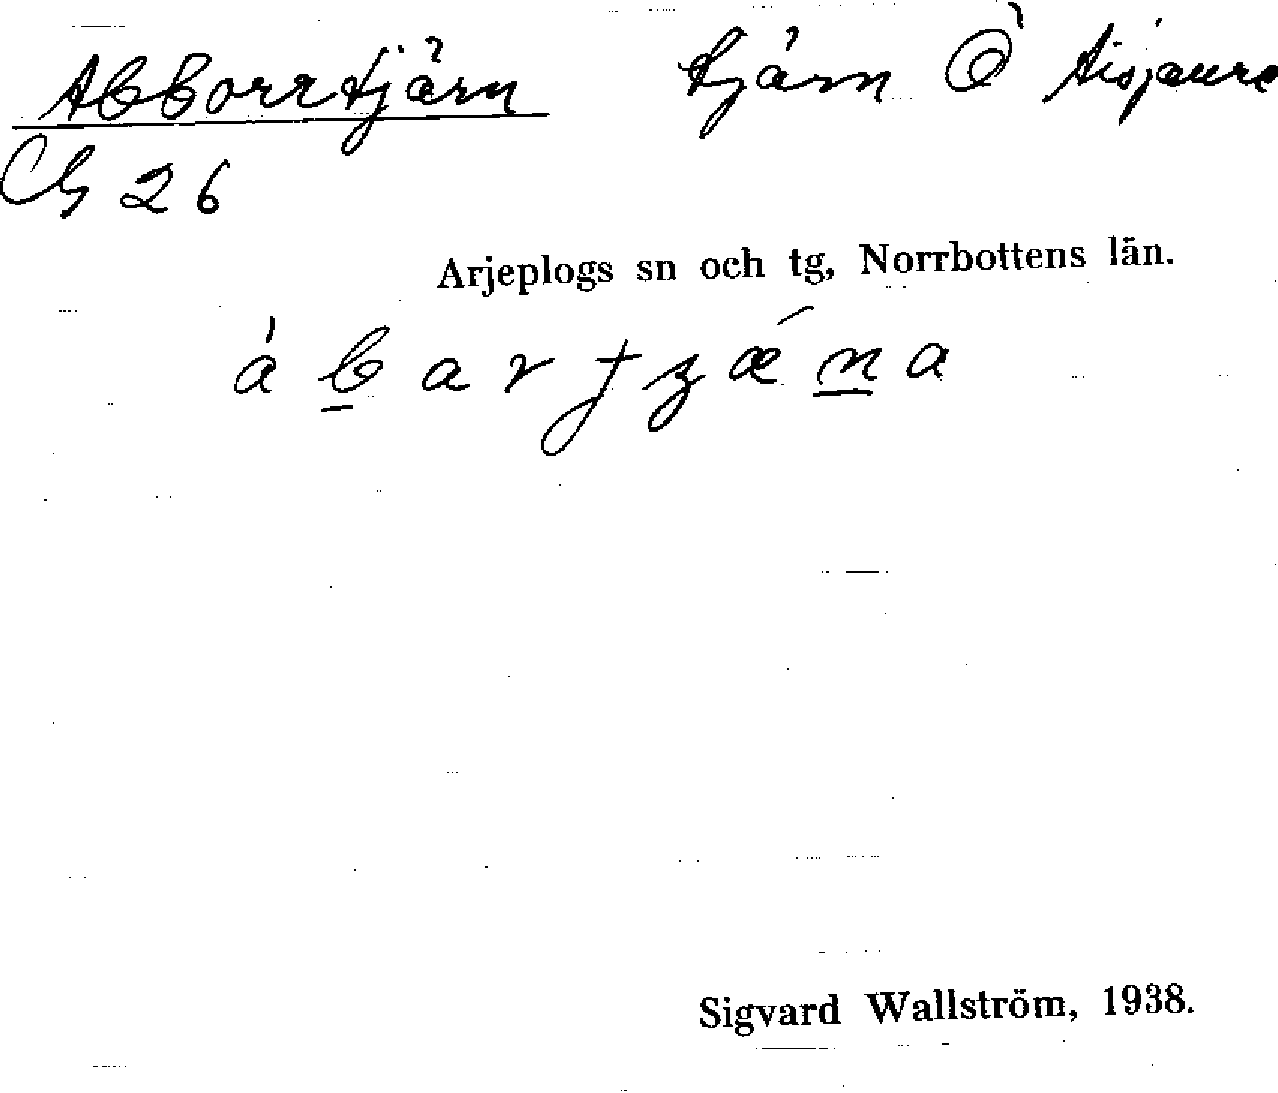 Abborrtjärn tjärn Ö Aisjaure
Ch 26
Arjeplogs sn och tg, Norrbottens län.
Sigvard Wallström, 1938.